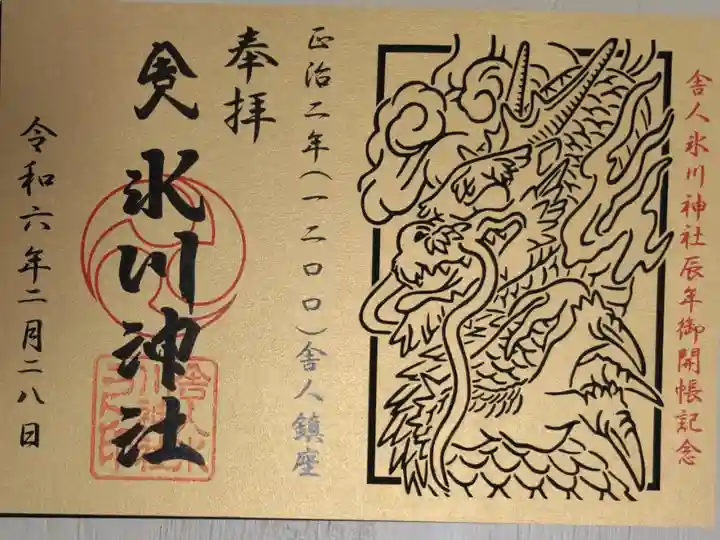 舎人氷川神社辰年御開帳記念
正治二年(一二〇〇)舎人鎮座
奉拝
舎人 氷川神社
令和六年二月二八日